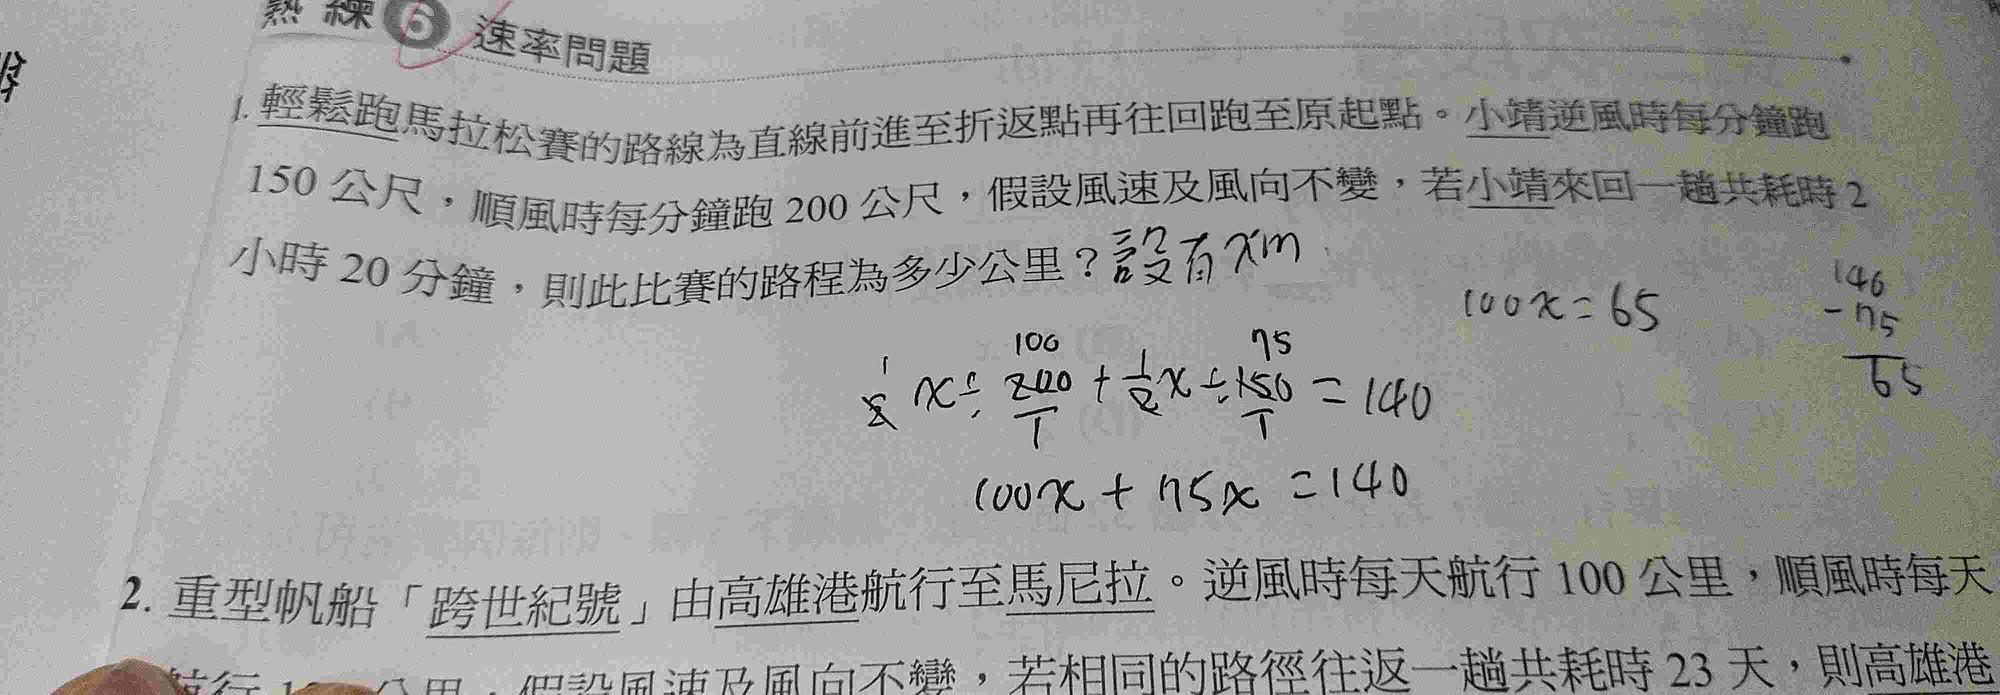 熟練 6 速率問題
1. 輕鬆跑馬拉松賽的路線為直線前進至折返點再往回跑至原起點。小靖逆風時每分鐘跑
150 公尺，順風時每分鐘跑 200 公尺，假設風速及風向不變，若小靖來回一趟共耗時 2
小時 20 分鐘，則此比賽的路程為多少公里？設有 xm
100x = 65
146
- 75
65
100 75
1/2 x ÷ 200/1 + 1/2 x ÷ 150/1 = 140
100x + 75x = 140
2. 重型帆船「跨世紀號」由高雄港航行至馬尼拉。逆風時每天航行 100 公里，順風時每天
航行 公里，假設風速及風向不變，若相同的路徑往返一趟共耗時 23 天，則高雄港